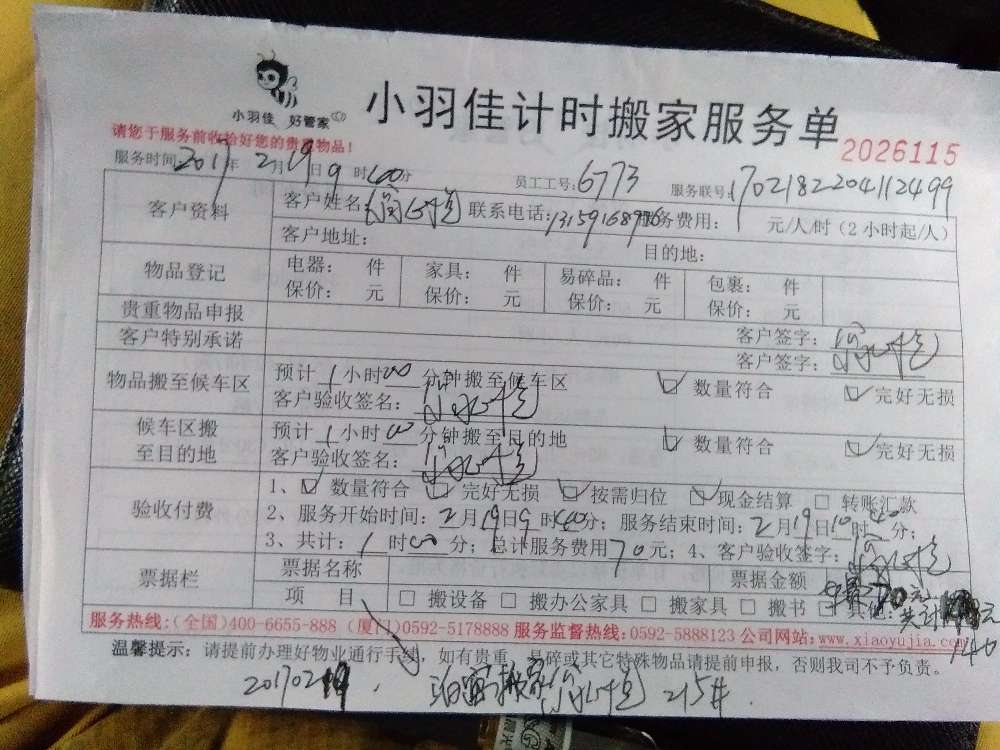 小羽佳 好管家
小羽佳计时搬家服务单
请您于服务前收拾好您的贵重物品！
2026115
服务时间2017年2月19日9时40分 员工工号:6773 服务联号:1702182204112499
客户资料 客户姓名 联系电话:13159168976 服务费用: 元/人/时（2小时起/人）
客户地址: 目的地:
物品登记 电器: 件 家具: 件 易碎品: 件 包裹: 件
保价: 元 保价: 元 保价: 元 保价: 元
贵重物品申报 客户签字:
客户特别承诺 客户签字:
物品搬至候车区 预计1小时00分钟搬至候车区 ☑数量符合 ☑完好无损
客户验收签名:
候车区搬至目的地 预计1小时00分钟搬至目的地 ☑数量符合 ☑完好无损
客户验收签名:
验收付费 1、☑数量符合 ☑完好无损 ☑按需归位 ☑现金结算 □转账汇款
2、服务开始时间:2月19日9时40分；服务结束时间:2月19日10时40分；
3、共计:1时00分；总计服务费用70元；4、客户验收签字:
票据栏 票据名称 票据金额 70元
项目 □搬设备 □搬办公家具 □搬家具 □搬书 □其他: 共计 元
140
服务热线:(全国)400-6655-888 (厦门)0592-5178888 服务监督热线:0592-5888123 公司网站:www.xiaoyujia.com
温馨提示: 请提前办理好物业通行手续，如有贵重、易碎或其它特殊物品请提前申报，否则我司不予负责。
搬家 215#